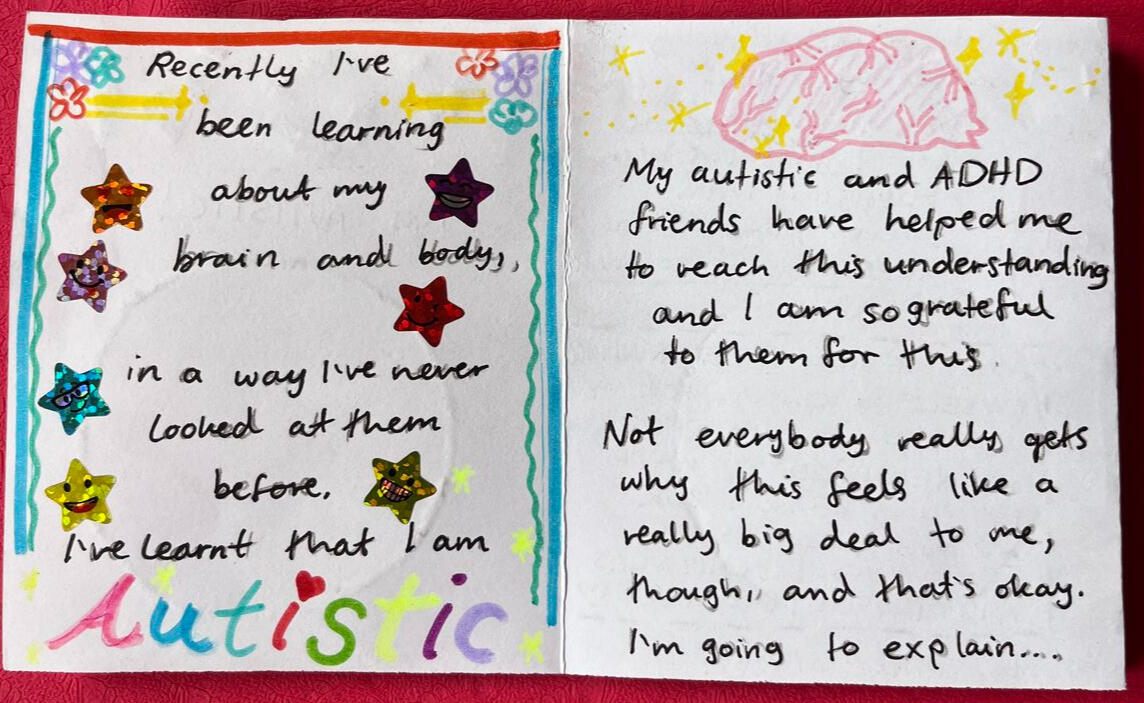 Recently I've
been learning
about my
brain and body,
in a way I've never
looked at them
before.
I've learnt that I am
Autistic
My autistic and ADHD
friends have helped me
to reach this understanding
and I am so grateful
to them for this.
Not everybody really gets
why this feels like a
really big deal to me,
though, and that's okay.
I'm going to explain....